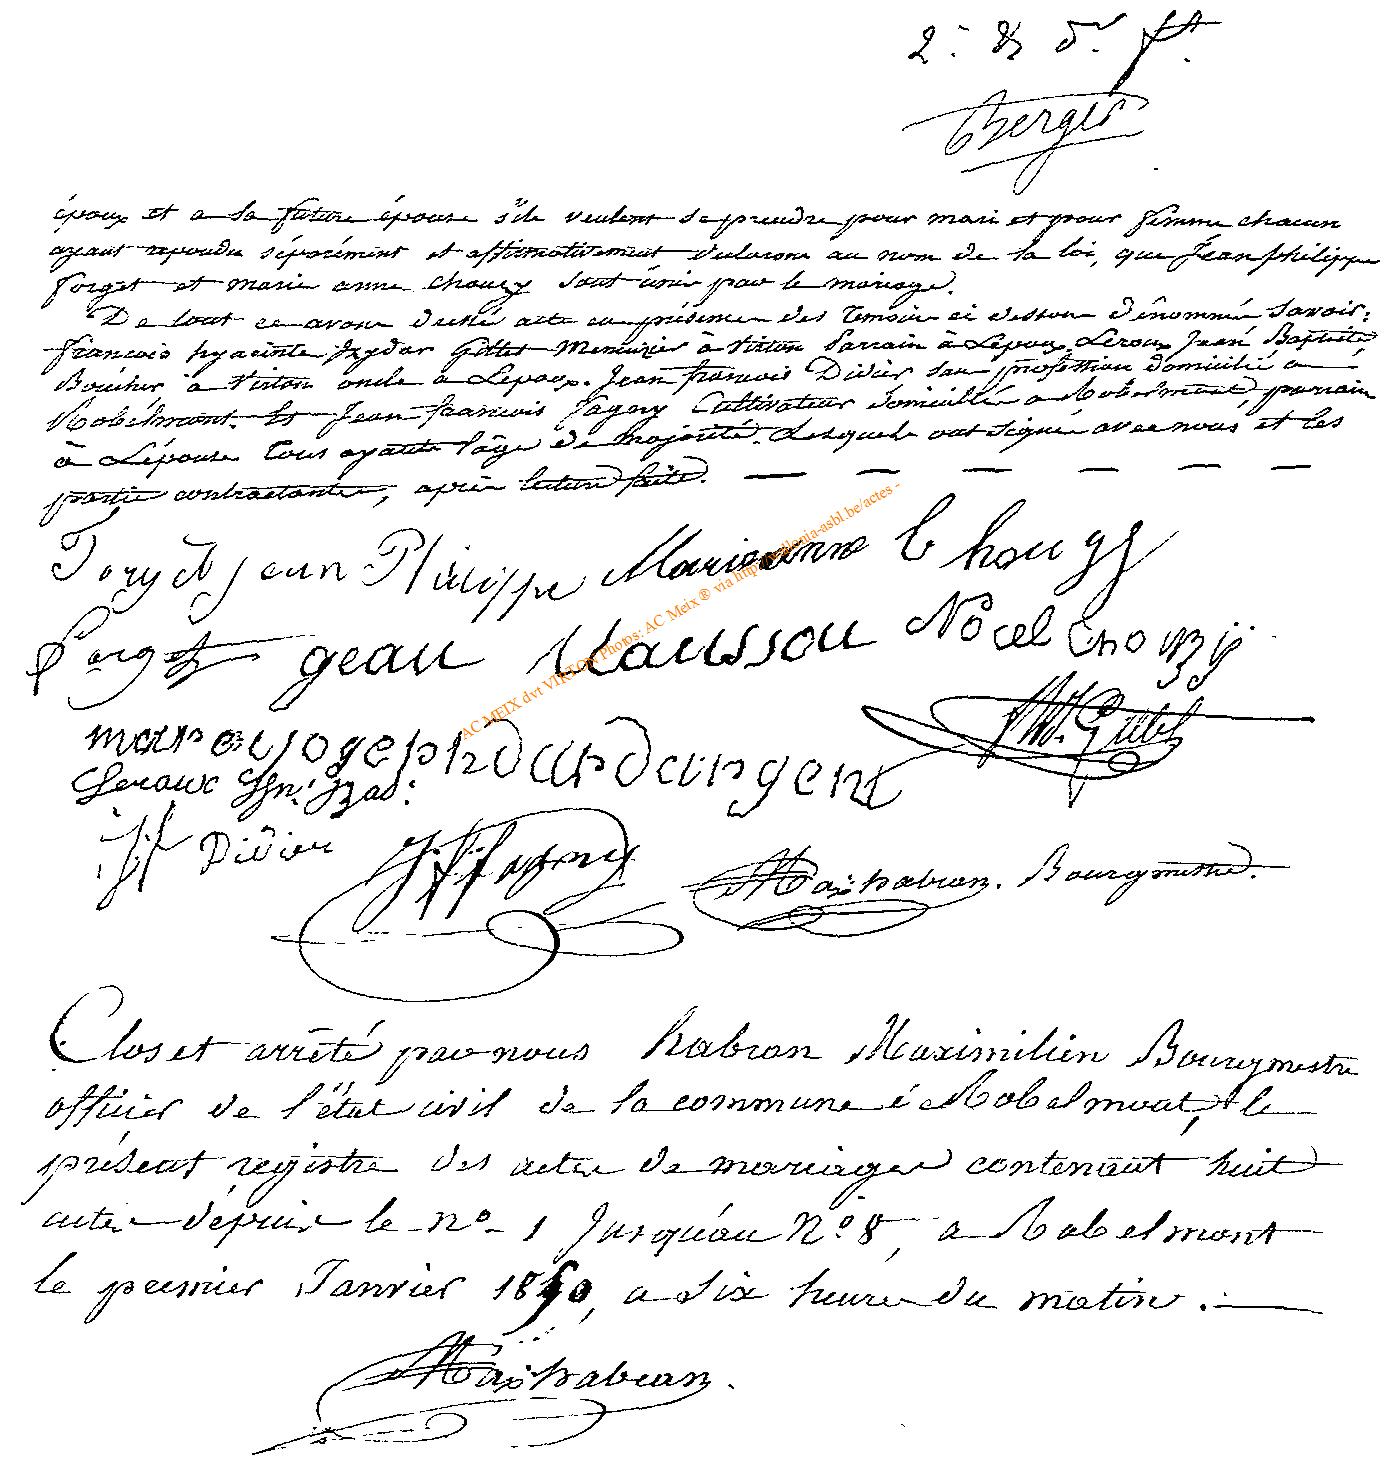 2.e & d.r f.t
Berger
époux et a la future épouse s'ils veulent se prendre pour mari et pour femme chacun
ayant repondu séporément et affirmativement declarons au nom de la loi, que Jean philippe
forget et marie anne chougy sont unis par le mariage.
De tout ce avons dressé acte en présence des temoins ci dessous dénommé Savoir:
francois hyacinte Gillet Menuisier à Virton Parrain à Lepoux, Leroux Jean Baptiste,
Boucher à Virton oncle a Lepoux. Jean francois Didier san profession domicilié a
Robelmont. Et Jean francois Jagny Cultivateur domicillié a Robelmont, parrain
à Lépouse tous ayants l'âge de majorité. Lesquels ont signé avec nous et les
partie contractantes, après lecture faite.
Jean Philippe Marieanne Chougy
forget gean Maussou Noel Chougy
Gillet
joseph dardargent
Leroux
Didier
Maxhabran. Bourgmestre.
Clos et arrêté par nous habran Maximilien Bourgmestre
officier de l'état civil de la commune é Robelmont, le
présent registre des actes de mariages contenant huit
actes depuis le nº 1 Jusqu'éau Nº 8, a Robelmont
le premier Janvier 1850, a Six heures du matin.
Maxhabran.
AC MEIX dvt VIRTON Photos: AC Meix ® via -asbl.be/actes -